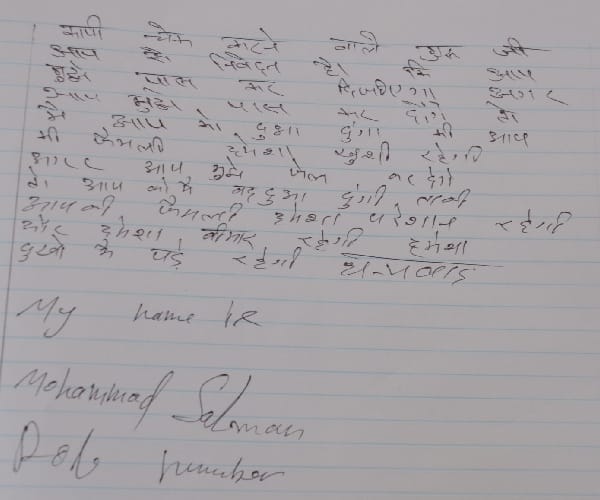 कापी चेक करने वाले गुरू जी
आप से निवेदन है। कि आप
मुझे पास कर दिजीएगा अगर
आप मुझे पास कर देंगे तो
मै आप को दुआ दुंगा की आप
की फैमली हमेशा खुशी रहेगी
अगर आप मुझे फेल कर देगे
तो आप को मै बददुआ दुंगी ताकी
आपकी फैमली हमेशा परेशान रहेगी
और हमेशा बीमार रहेगी हमेशा
दुखो मे पड़े रहेगी धन्यवाद
My name is
Mohammad Salman
Rolo number